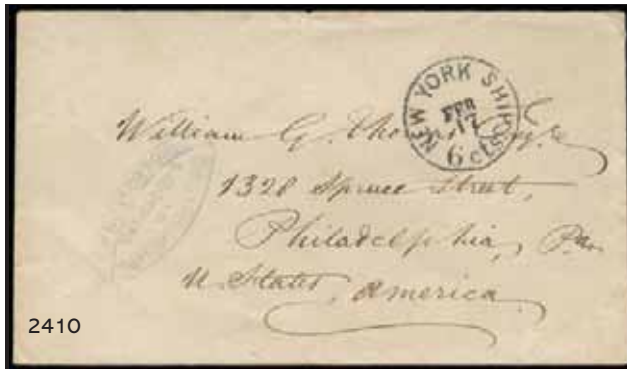 NEW YORK SHIP
FEB
17
6 cts
William G.
1328 Spruce Street,
Philadelphia, Pa.
U. States, America.
2410